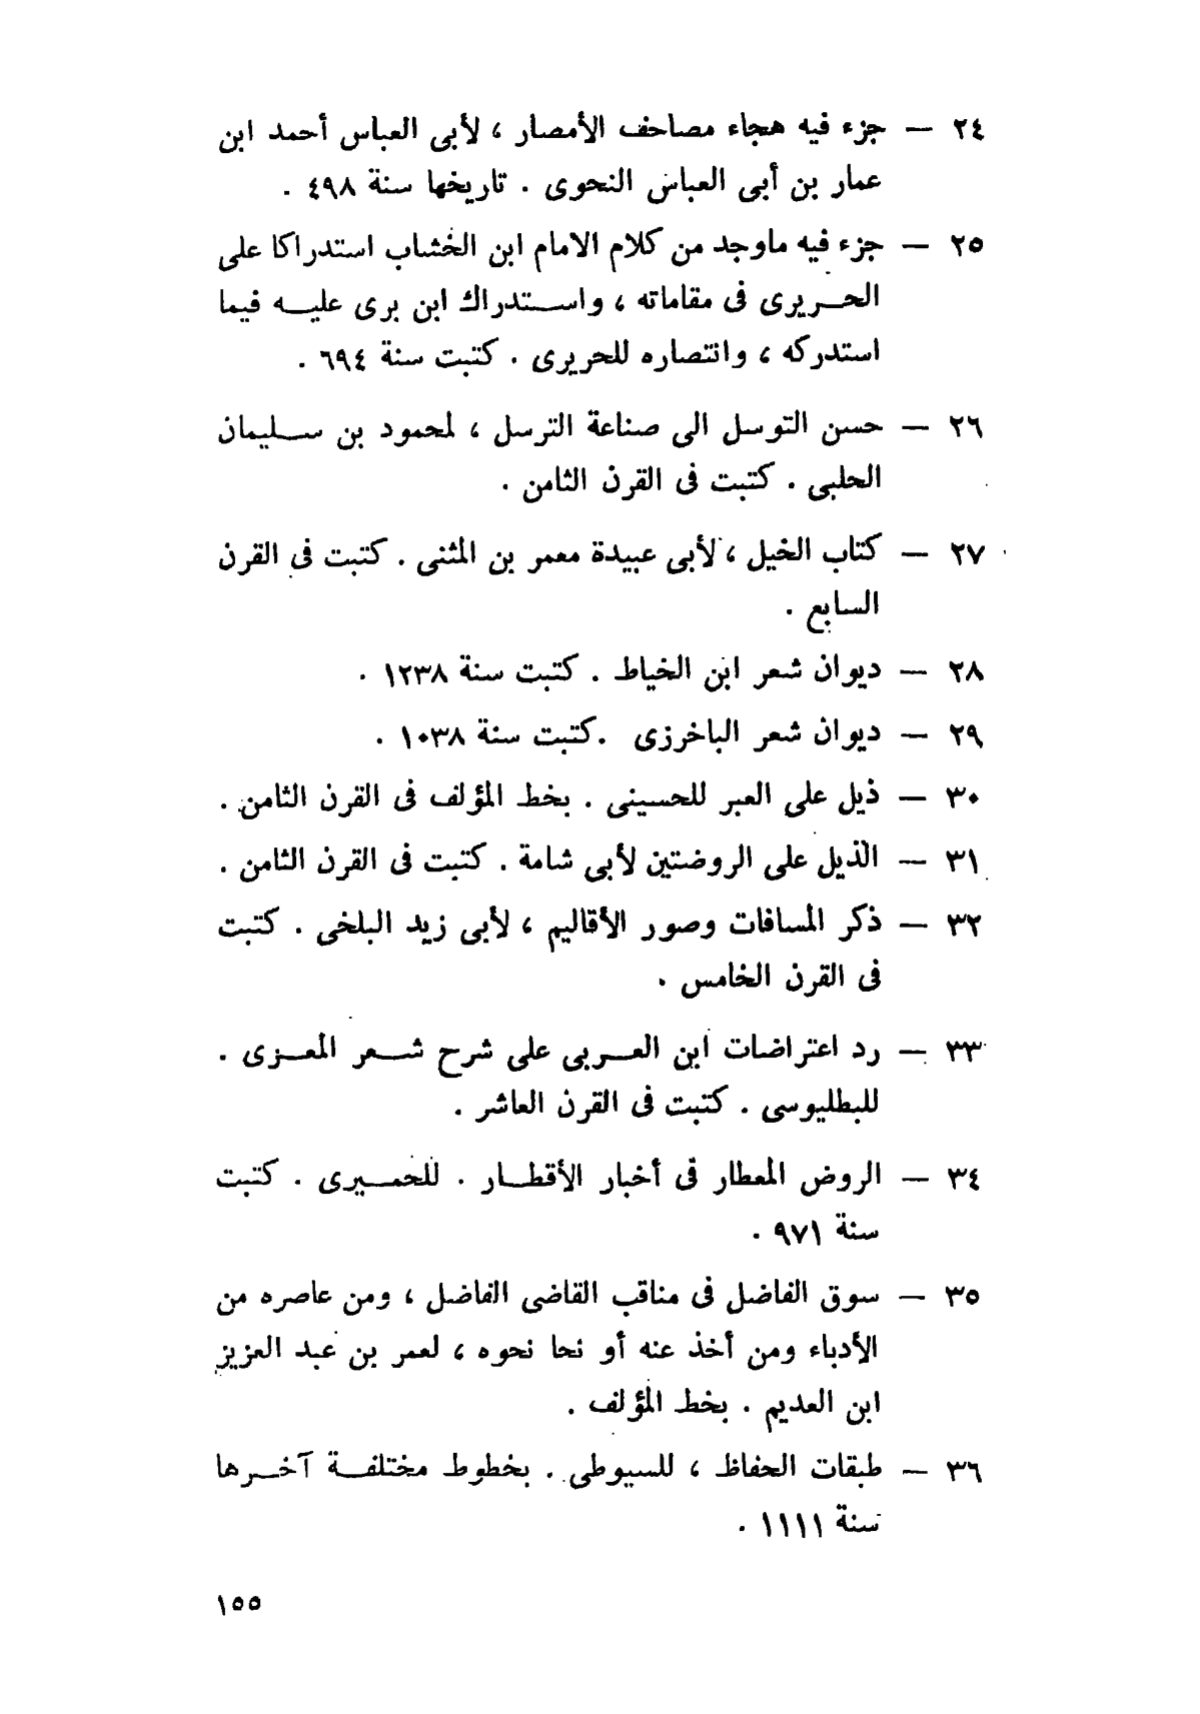 ٢٤ — جزء فيه هجاء مصاحف الأمصار ، لأبى العباس أحمد ابن
عمار بن أبى العباس النحوى . تاريخها سنة ٤٩٨ .
٢٥ — جزء فيه ماوجد من كلام الامام ابن الخشاب استدراكا على
الحريرى فى مقاماته ، واستدراك ابن برى عليه فيما
استدركه ، وانتصاره للحريرى . كتبت سنة ٦٩٤ .
٢٦ — حسن التوسل الى صناعة الترسل ، لمحمود بن سليمان
الحلبى . كتبت فى القرن الثامن .
٢٧ — كتاب الخيل ، لأبى عبيدة معمر بن المثنى . كتبت فى القرن
السابع .
٢٨ — ديوان شعر ابن الخياط . كتبت سنة ١٢٣٨ .
٢٩ — ديوان شعر الباخرزى .كتبت سنة ١٠٣٨ .
٣٠ — ذيل على العبر للحسينى . بخط المؤلف فى القرن الثامن .
٣١ — الذيل على الروضتين لأبى شامة . كتبت فى القرن الثامن .
٣٢ — ذكر المسافات وصور الأقاليم ، لأبى زيد البلخى . كتبت
فى القرن الخامس .
٣٣ — رد اعتراضات ابن العربى على شرح شعر المعزى .
للبطليوسى . كتبت فى القرن العاشر .
٣٤ — الروض المعطار فى أخبار الأقطار . للحميرى . كتبت
سنة ٩٧١ .
٣٥ — سوق الفاضل فى مناقب القاضى الفاضل ، ومن عاصره من
الأدباء ومن أخذ عنه أو نحا نحوه ، لعمر بن عبد العزيز
ابن العديم . بخط المؤلف .
٣٦ — طبقات الحفاظ ، للسيوطى . بخطوط مختلفة آخرها
سنة ١١١١ .
١٥٥